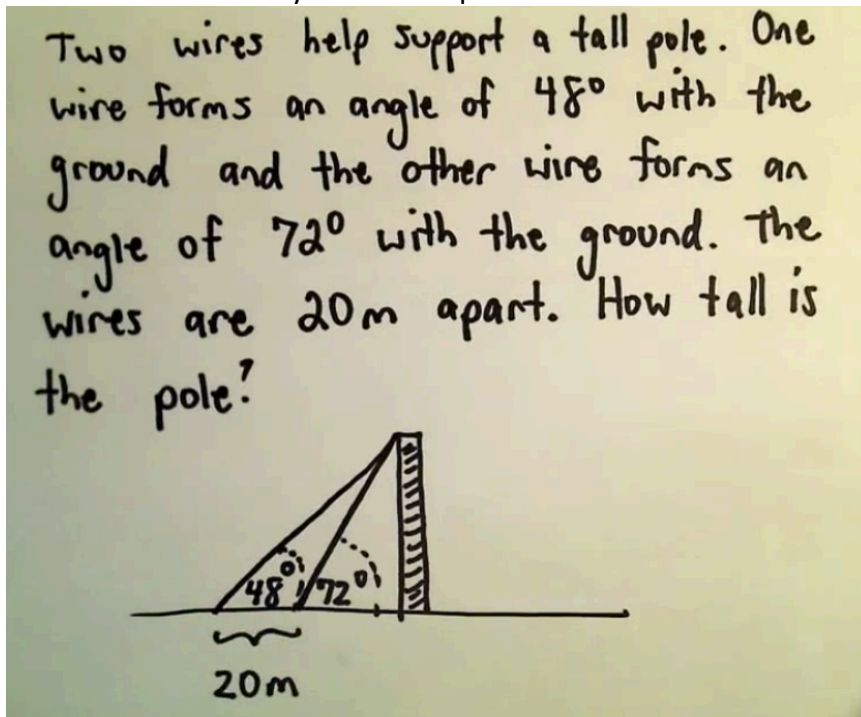 Two wires help support a tall pole. One
wire forms an angle of 48° with the
ground and the other wire forms an
angle of 72° with the ground. The
wires are 20m apart. How tall is
the pole?
48° 72°
20m